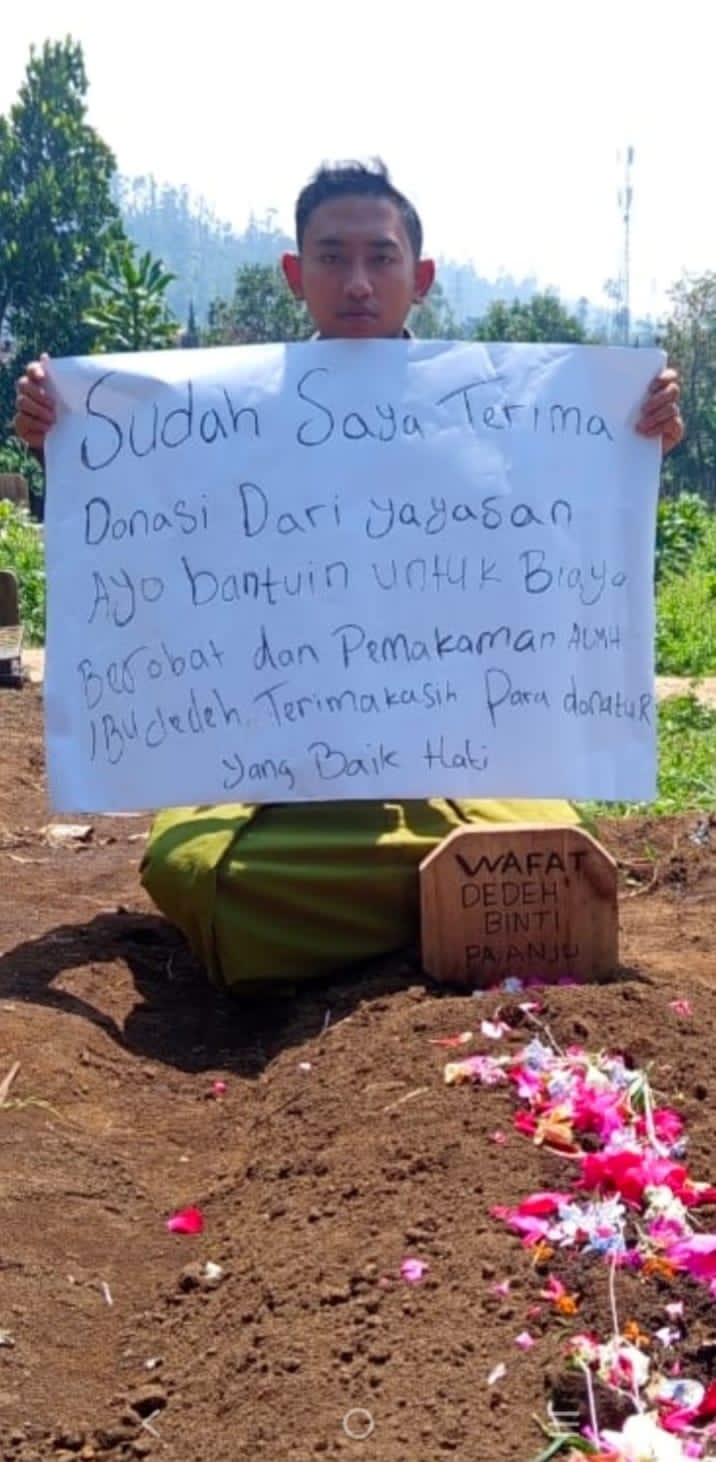 Sudah Saya Terima
Donasi Dari yayasan
Ayo bantuin untuk Biaya
Berobat dan Pemakaman ALMH
IBU dedeh. Terimakasih Para donatuR
yang Baik Hati
WAFAT
DEDEH
BINTI
PAJANJU